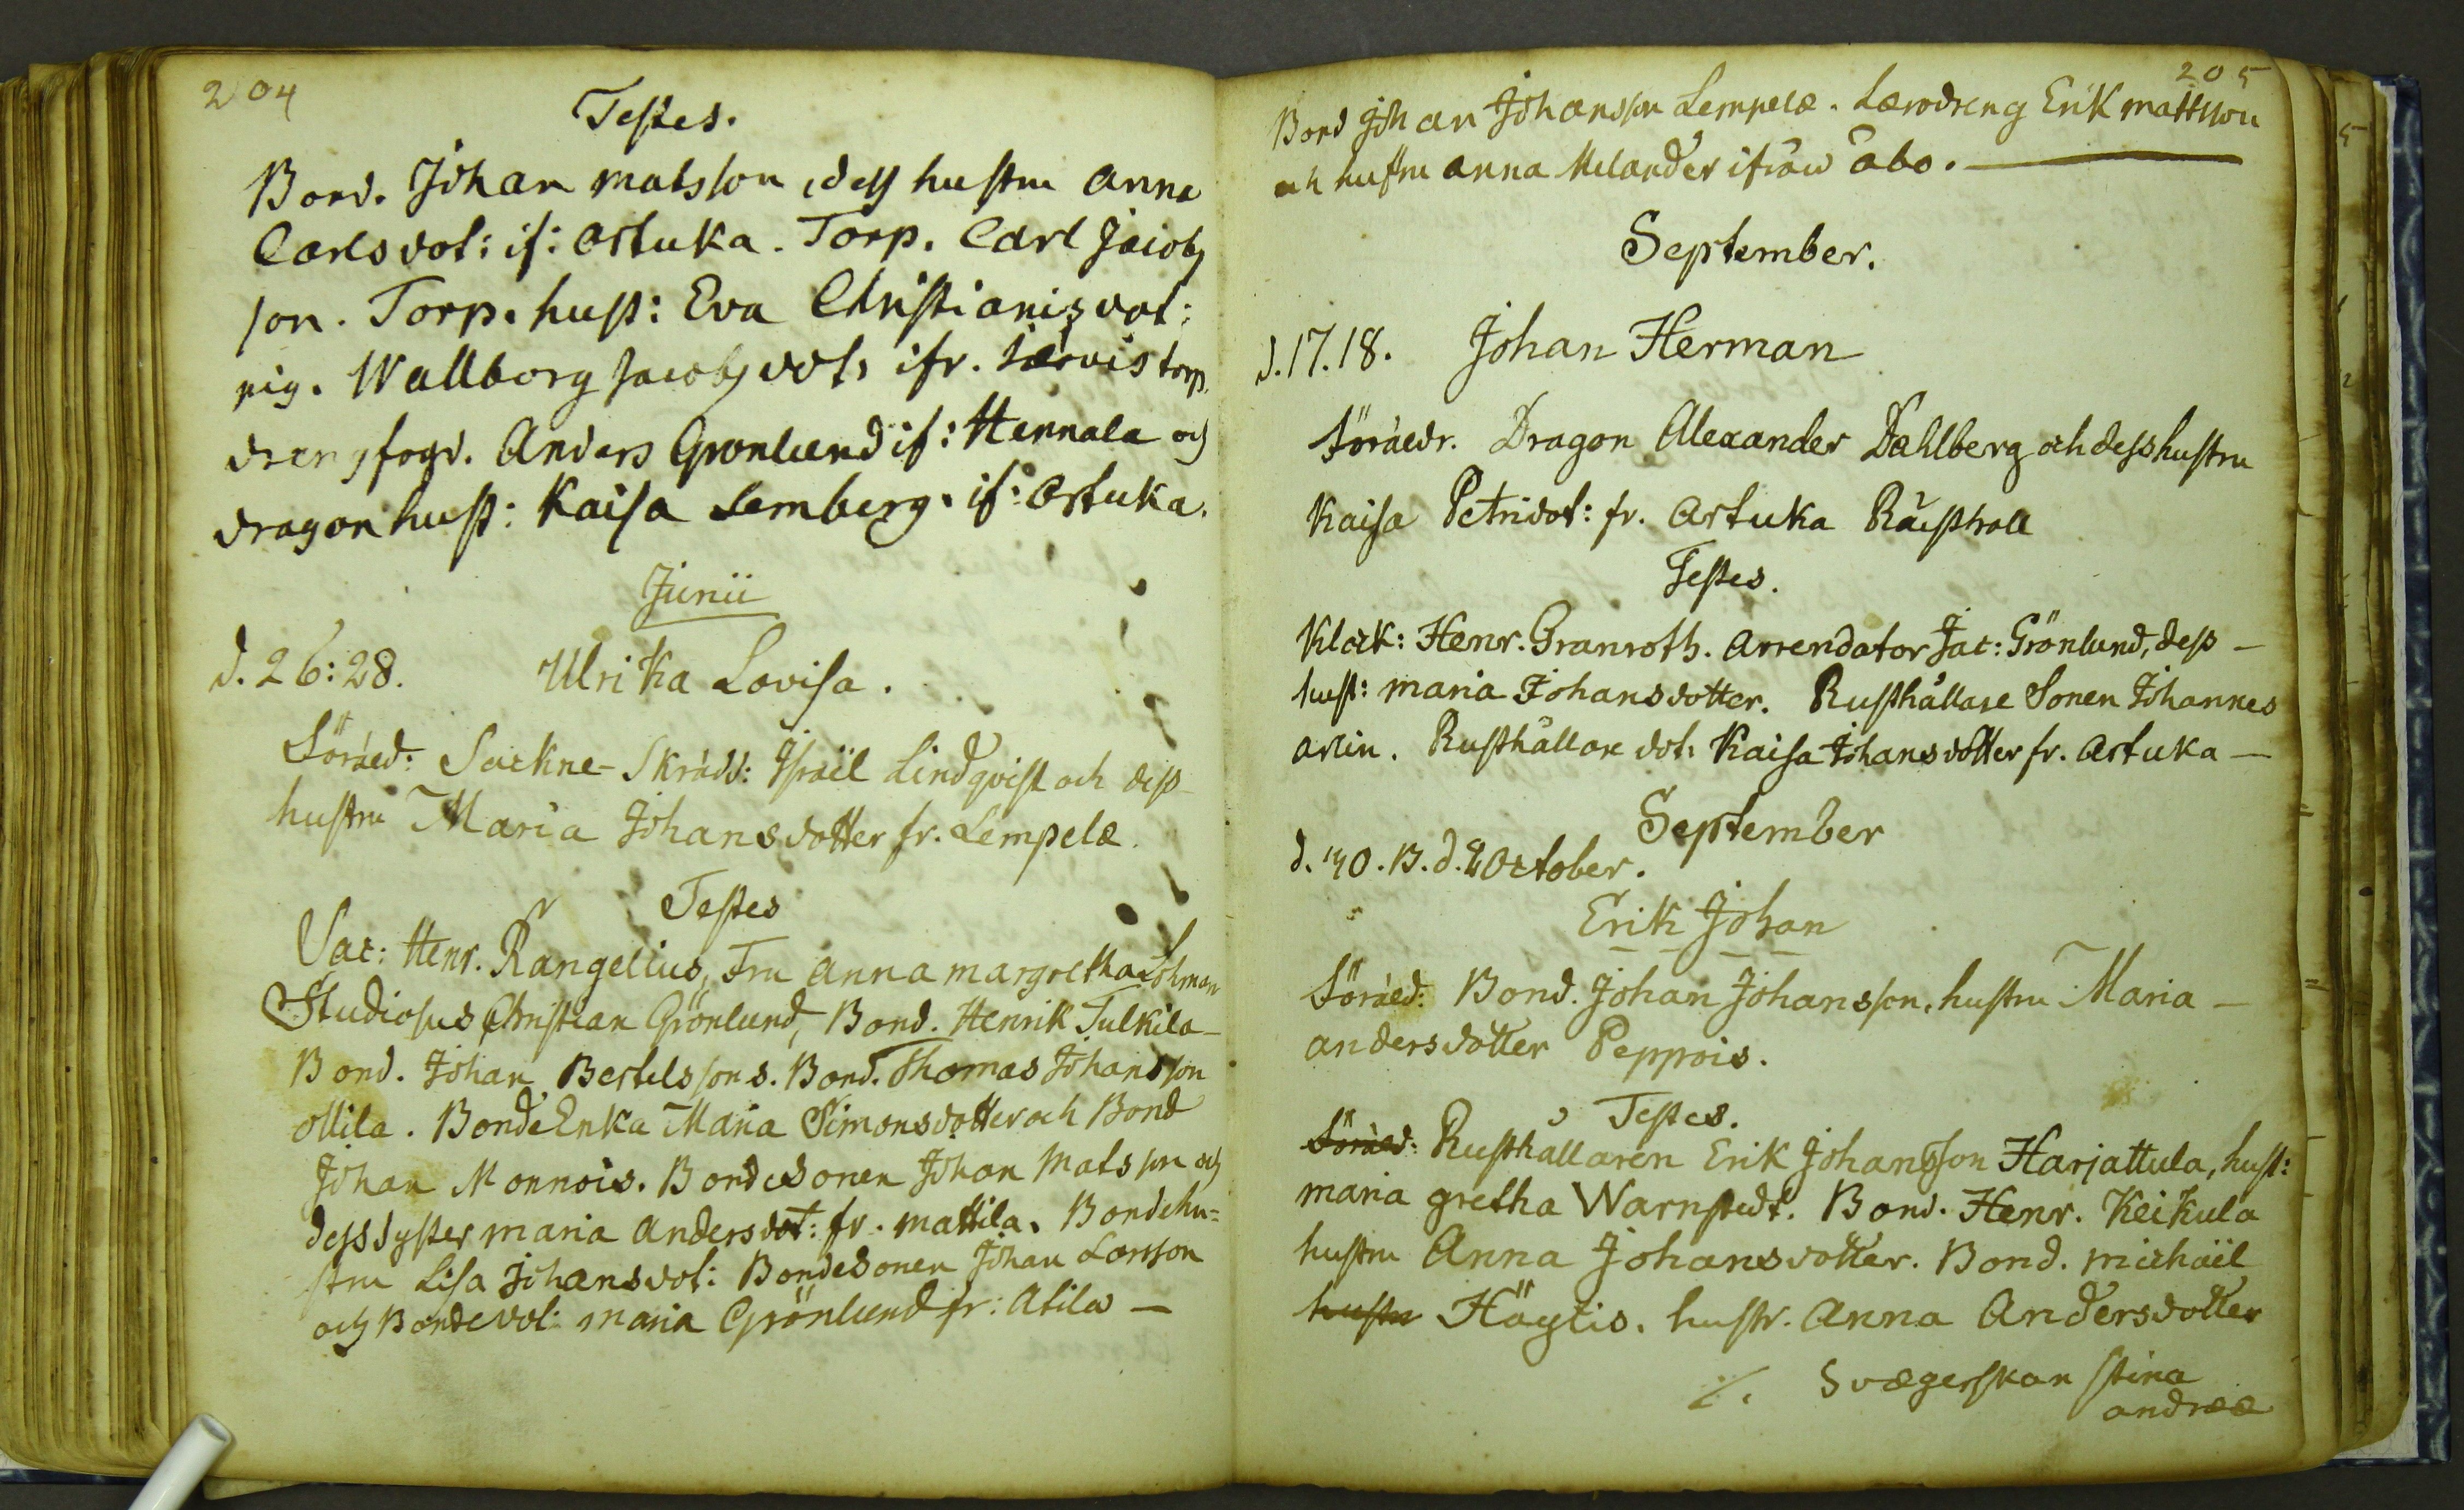 204
Testes.
Bond. Johan Matsson, dess hustru Anna
Carlsdot: if: Artuka. Torp. Carl Jacobs
son. Torp. hust: Eva Christianisdot:
pig. Wallborg Jacobsdot: ifr. Järvis torp.
drengfogd. Anders Grönlund if: Hennala och
dragon hust: Kaisa Lemberg. if: Artuka.
Junii
d. 26:28. Ulrika Lovisa.
Föräld: Sockne-Skrädd: Israël Lindqvist och dess
hustru Maria Johansdotter fr. Lempelæ.
Testes
Sac: Henr. Rangelius, Fru Anna Margretha Lohman
Studiosus Christian Grönlund, Bond. Henrik Tulkila
Bond. Johan Bertelssons. Bond. Thomas Johansson
Ollila. Bonde Enka Maria Simonsdotter och Bond
Johan Monnois. Bonde Sonen Johan Matsson och
dess Syster Maria Andersdot: fr. Mattila. Bondehu=
stru Lisa Johansdot: Bonde Sonen Johan Larsson
och Bondedot: Maria Grönlund fr: Atila —
205
Bond Johan Johansson Lempelæ. Lærodreng Erik Mattsson
och hustru Anna Melander ifrån Åbo. —
September.
d. 17. 18. Johan Herman
Föräldr. Dragon Alexander Dahlberg och dess hustru
Kaisa Petridot: fr. Artuka Rusthåll
Testes.
Klock: Henr. Granroth. Arrendator Jac: Grönlund, dess —
hust: Maria Johansdotter. Rusthållare Sonen Johannes
Arlin. Rusthållare dot: Kaisa Johansdotter fr. Artuka —
September
d. 30. B. d. 2 October.
Erik Johan
Föräld: Bond. Johan Johansson, hustru Maria —
Andersdotter Peppois.
Testes.
Föräld: Rusthållaren Erik Johansson Harjattula, hust:
Maria Gretha Warnstedt. Bond. Henr. Keikula
hustru Anna Johansdotter. Bond. Michaël
hustru Häytis. hustr. Anna Andersdotter
./. Svægerskan Stina
Andreæ